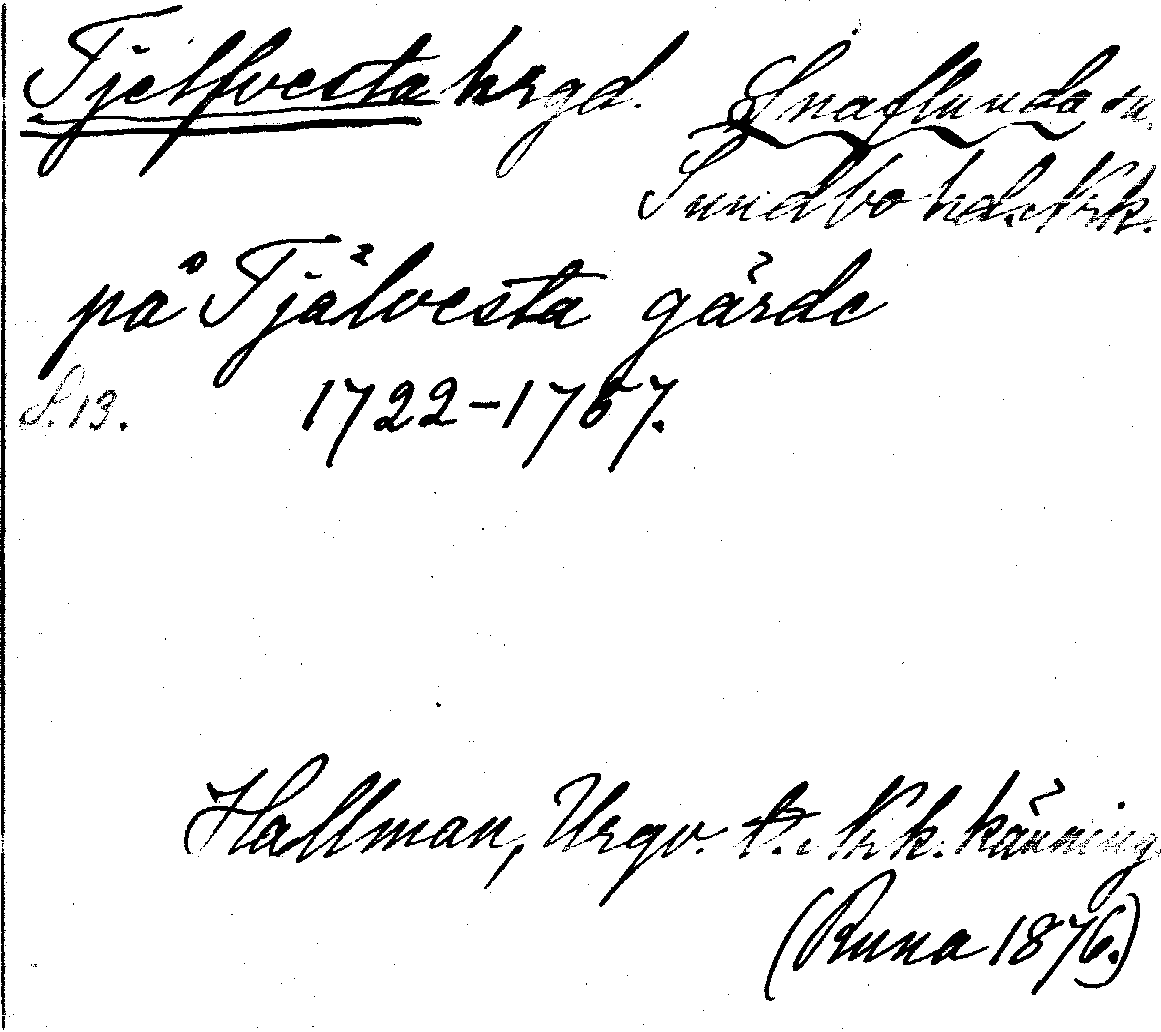 Tjelfvesta hrgd. Snaflunda sn,
Sundbo hd. Nrk.
på Tjälvesta gärde
S. 13. 1722-1767.
Hallman, Urgv. t. Nrk. känning
(Runa 1876.)